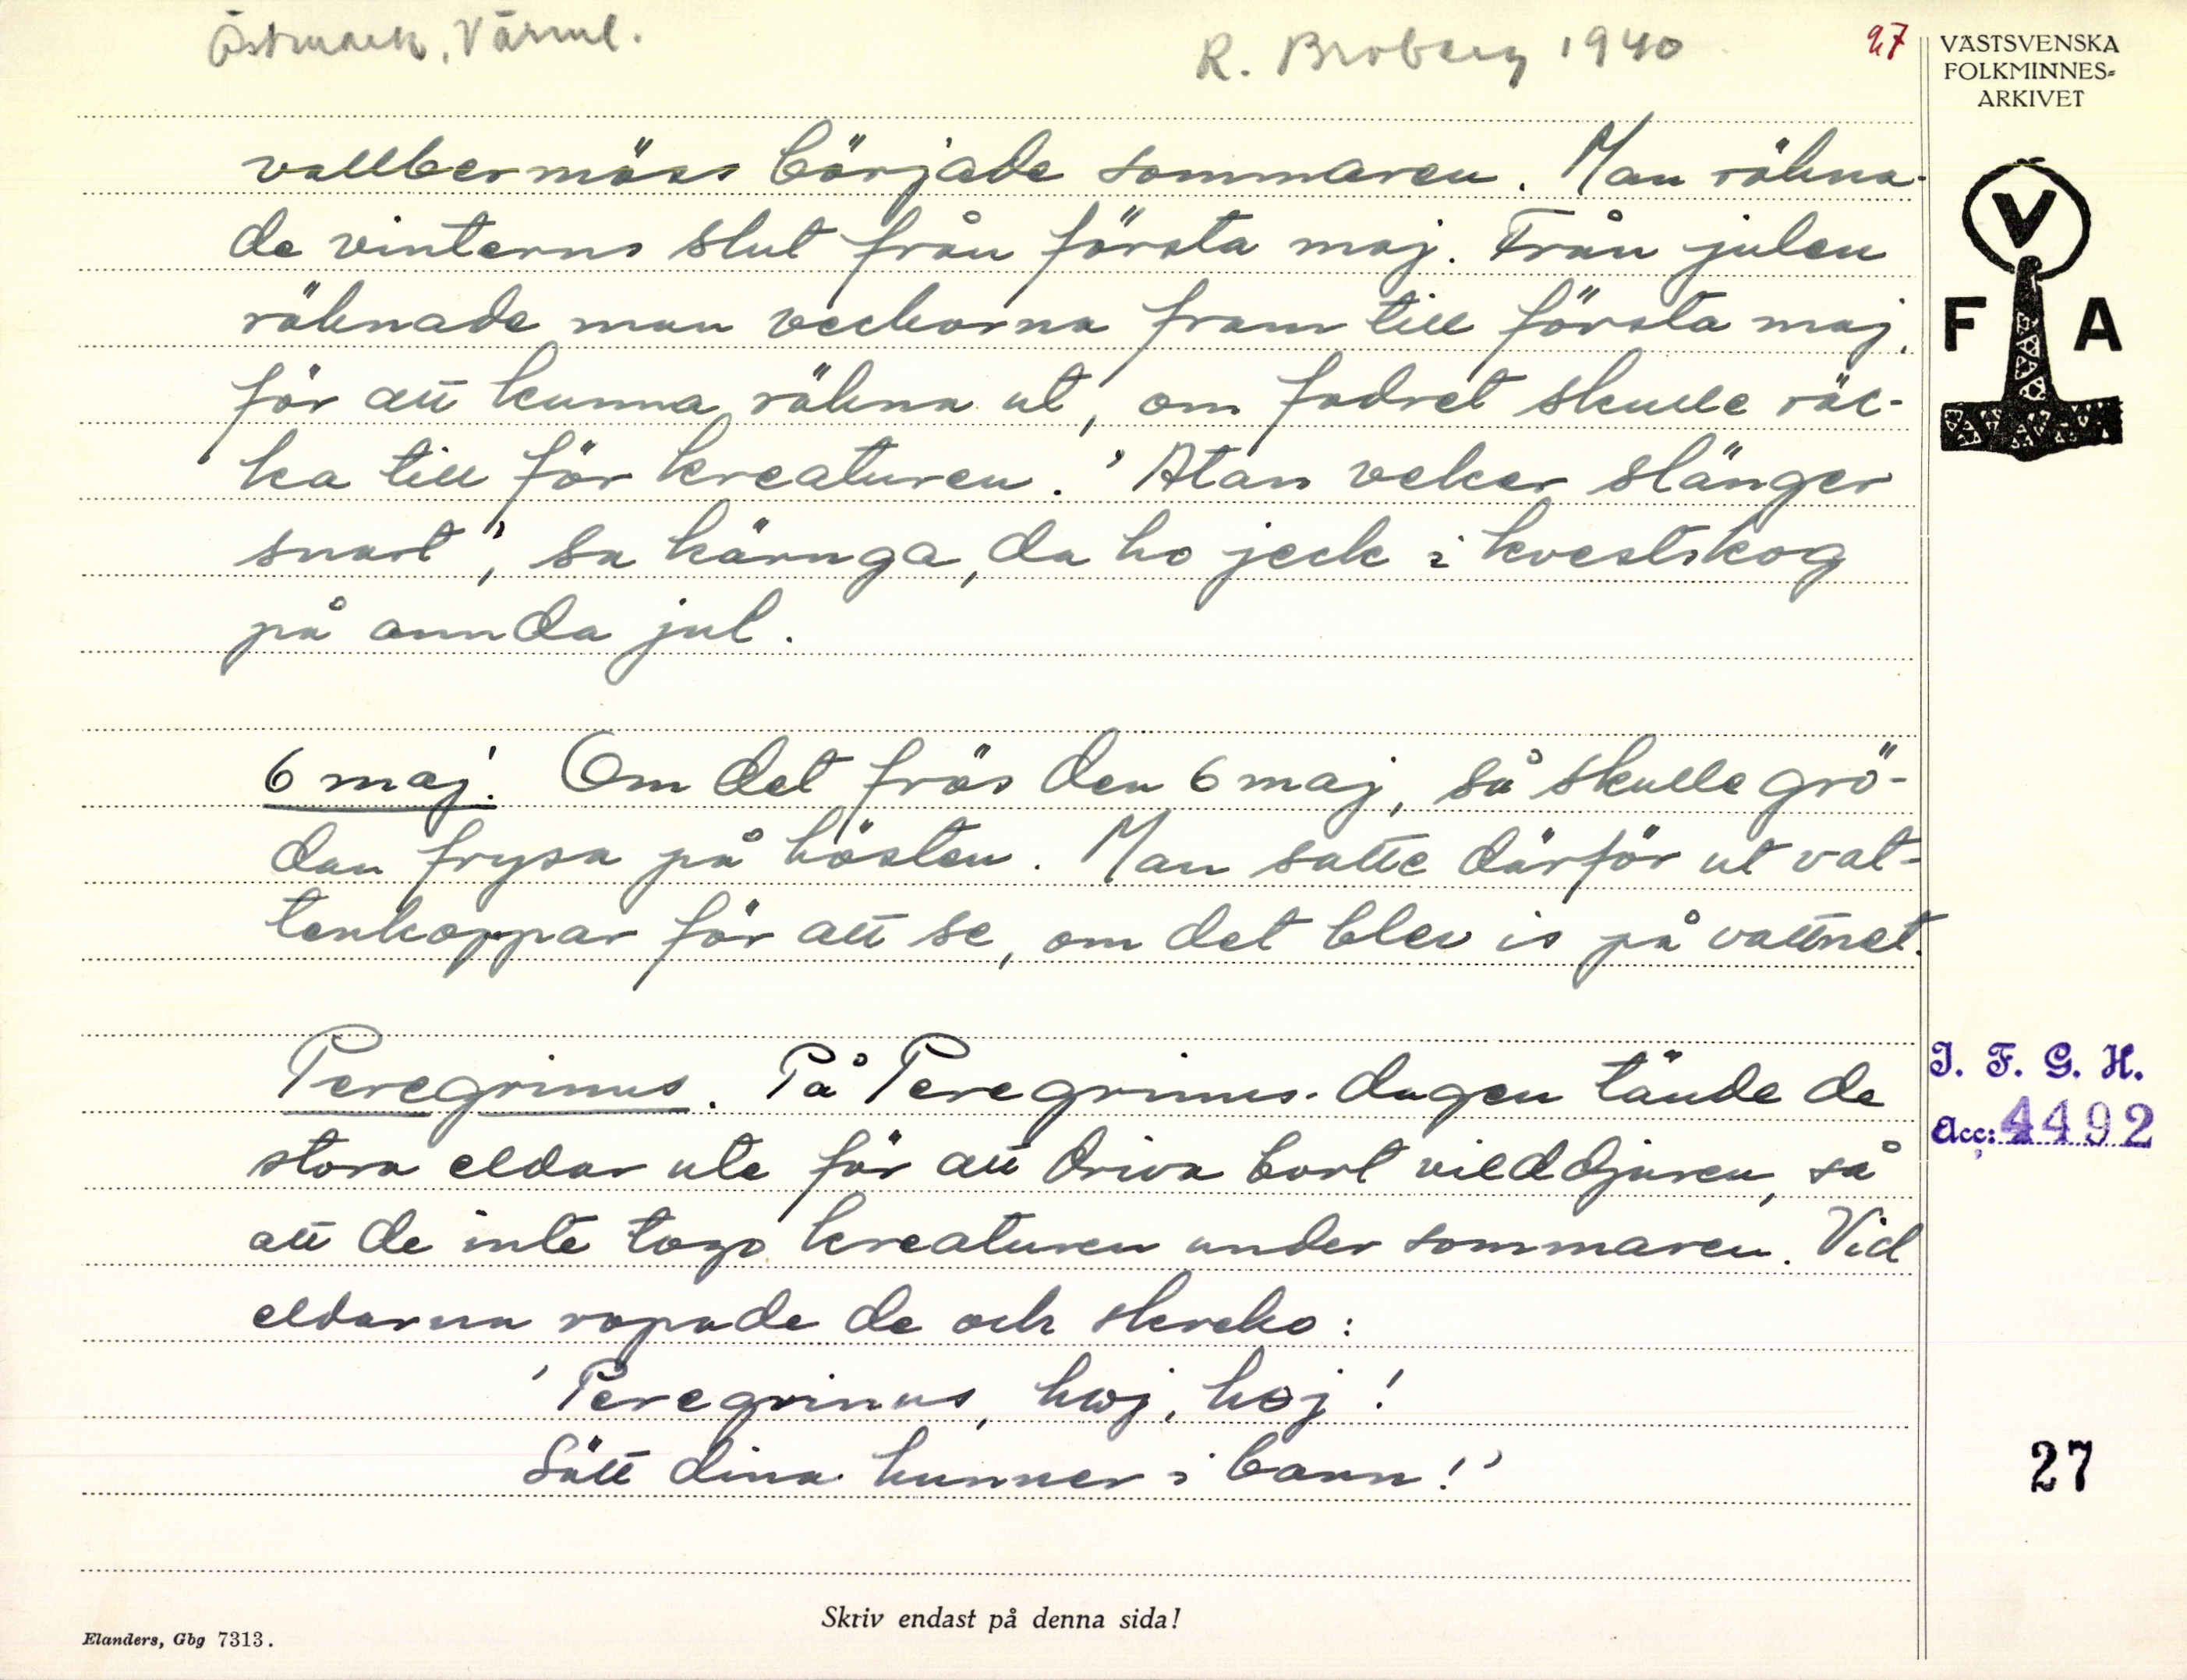 Östmark, Värml.
R. Broberg 1940
27
VÄSTSVENSKA
FOLKMINNES-
ARKIVET
V
F A
vallbermäss började sommaren. Man räkna-
de vinterns slut från första maj. Från julen
räknade man veckorna fram till första maj,
för att kunna räkna ut, om fodret skulle räc-
ka till för kreaturen. 'Atan veker slänger
snart', sa kärnga, da ho jeck i kvestskog
på annda jul.
6 maj. Om det frös den 6 maj, så skulle grö-
dan frysa på hösten. Man satte därför ut vat-
tenkoppar för att se, om det blev is på vattnet.
Peregrinus. På Peregrinus-dagen tände de
stora eldar ute för att driva bort vilddjuren, så
att de inte togo kreaturen under sommaren. Vid
eldarna ropade de och skreko:
'Peregrinus, hoj, hoj!
Sätt dina hunner i bann!'
I. F. G. H.
Acc: 4492
27
Skriv endast på denna sida!
Elanders, Gbg 7313.